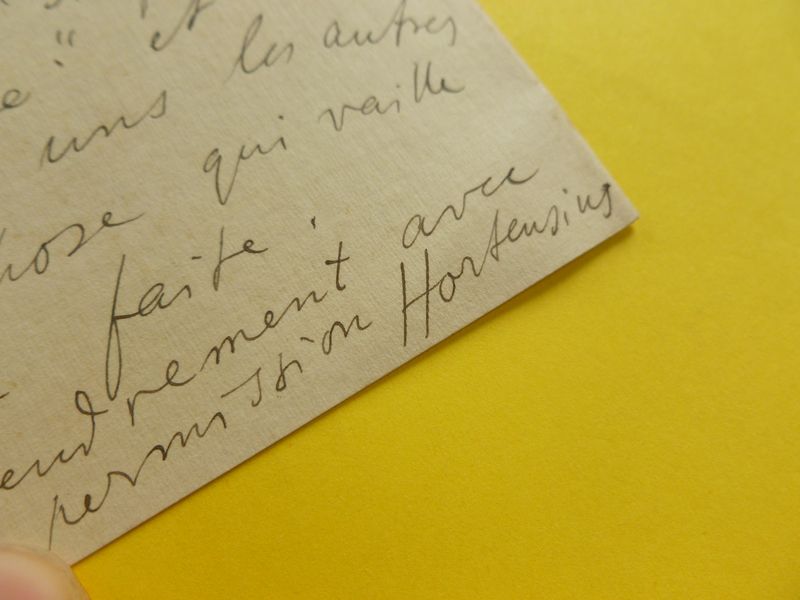 e" et
uns les autres
hose qui vaille
faite.
endrement avec
permission Hortensius